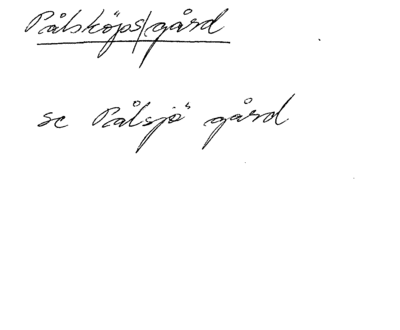 Pålsköps/gård
se Pålsjö gård